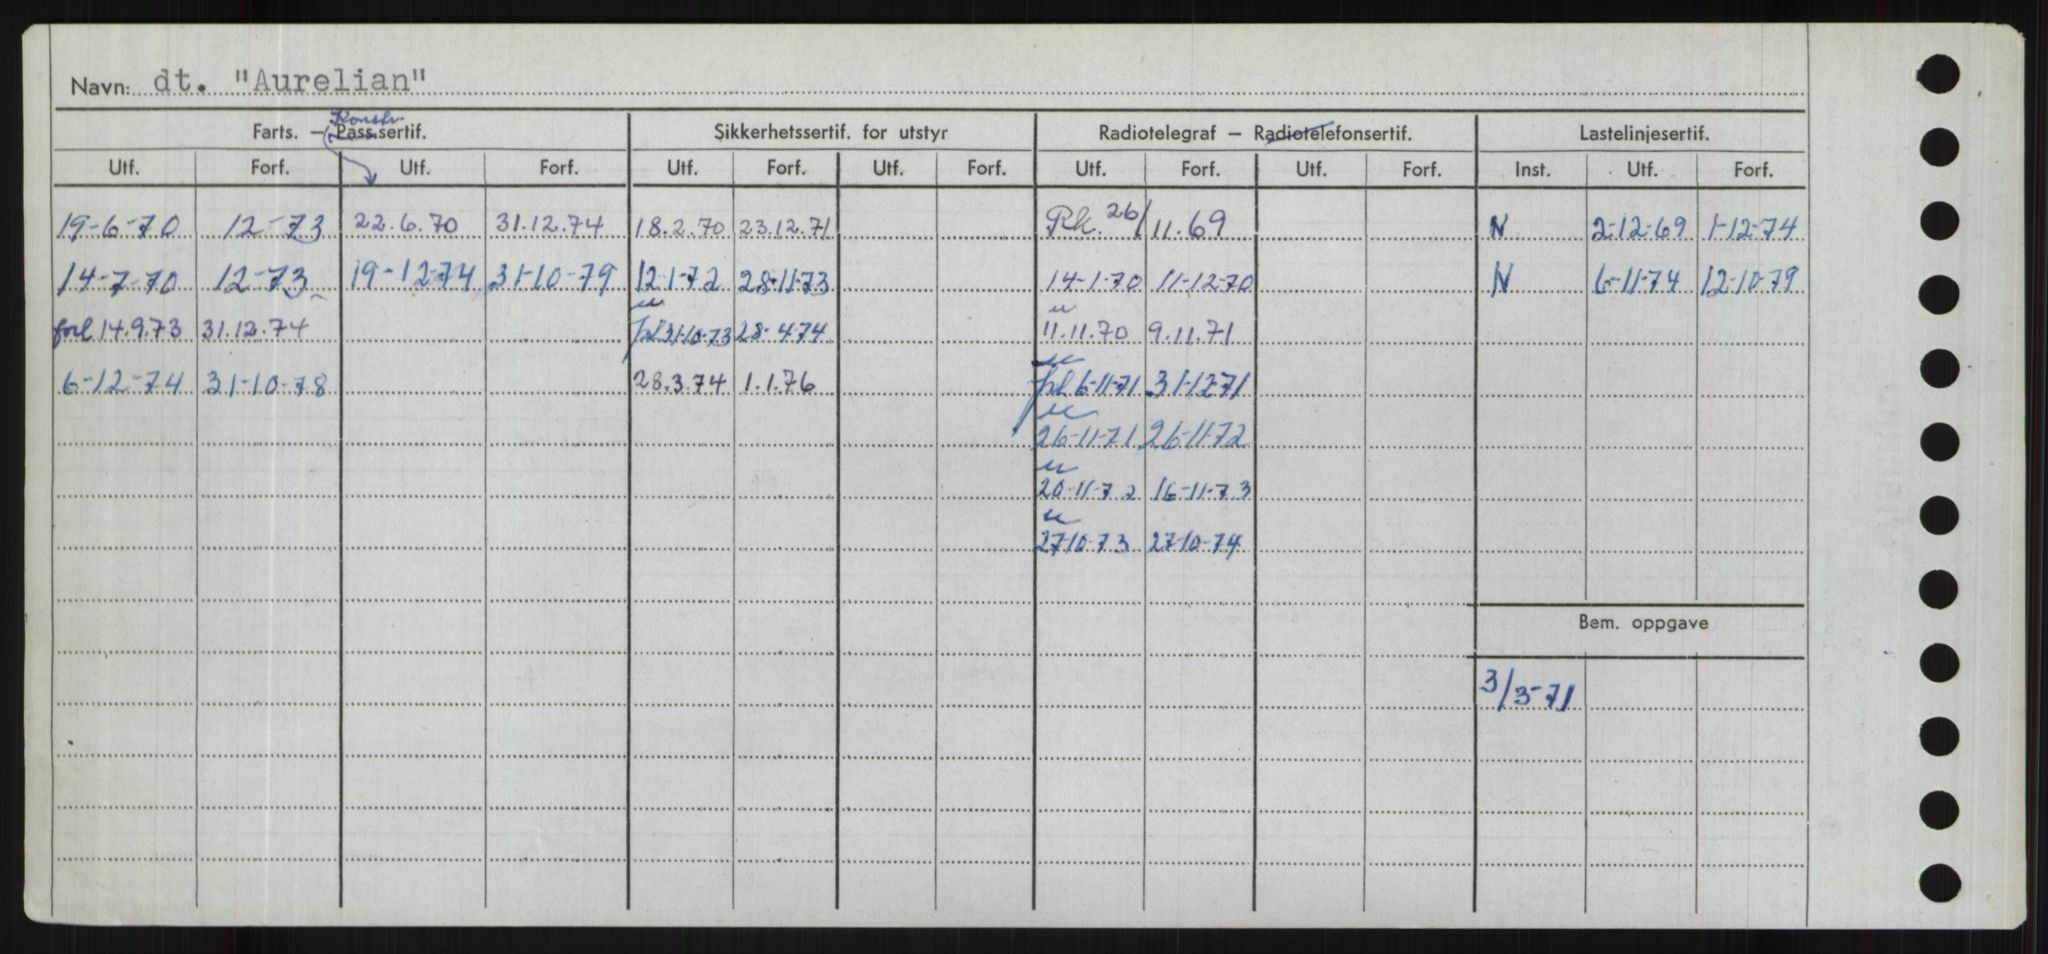 Navn: dt. "Aurelian"
Konstr.
Farts. – Pass.sertif. Sikkerhetssertif. for utstyr Radiotelegraf – Radiotelefonsertif. Lastelinjesertif.
Utf. Forf. Utf. Forf. Utf. Forf. Utf. Forf. Utf. Forf. Utf. Forf. Inst. Utf. Forf.
19-6-70 12-73 22.6.70 31.12.74 18.2.70 23.12.71 Rk. 26/11.69 N 2-12-69 1-12-74
14-7-70 12-73 19-12-74 31-10-79 12-1-72 28-11-73 14-1-70 11-12-70 N 6-11-74 12-10-79
u u
forl 14.9.73 31.12.74 forl 31-10-73 28-4-74 11.11.70 9.11.71
u
6-12-74 31-10-78 28.3.74 1.1.76 forl 6-11-71 31-12-71
u
26-11-71 26-11-72
u
20-11-72 16-11-73
u
27-10-73 27-10-74
Bem. oppgave
3/3-71